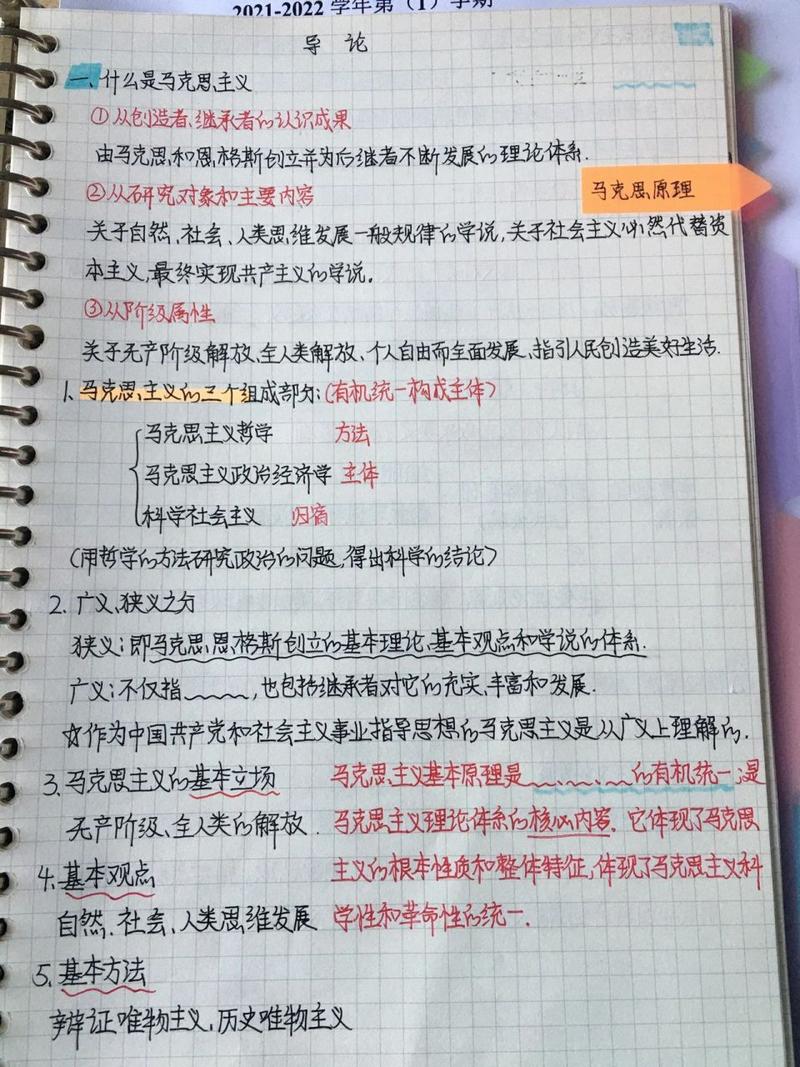 2021-2022 学年第（1）学期
导 论
一、什么是马克思主义
①从创造者、继承者的认识成果
由马克思和恩格斯创立并为后继者不断发展的理论体系.
②从研究对象和主要内容
马克思原理
关于自然、社会、人类思维发展一般规律的学说,关于社会主义必然代替资
本主义,最终实现共产主义的学说。
③从阶级属性
关于无产阶级解放、全人类解放、个人自由而全面发展、指引人民创造美好生活.
1、马克思主义的三个组成部分:(有机统一构成主体)
马克思主义哲学 方法
马克思主义政治经济学 主体
科学社会主义 归宿
(用哲学的方法研究政治的问题,得出科学的结论)
2. 广义、狭义之分
狭义:即马克思、恩格斯创立的基本理论、基本观点和学说的体系.
广义:不仅指﹏﹏,也包括继承者对它的充实、丰富和发展.
☆作为中国共产党和社会主义事业指导思想的马克思主义是从广义上理解的.
3、马克思主义的基本立场
无产阶级、全人类的解放.
4. 基本观点
自然、社会、人类思维发展
5. 基本方法
辩证唯物主义,历史唯物主义
马克思主义基本原理是﹏、﹏、﹏的有机统一;是
马克思主义理论体系的核心内容. 它体现了马克思
主义的根本性质和整体特征,体现了马克思主义科
学性和革命性的统一.